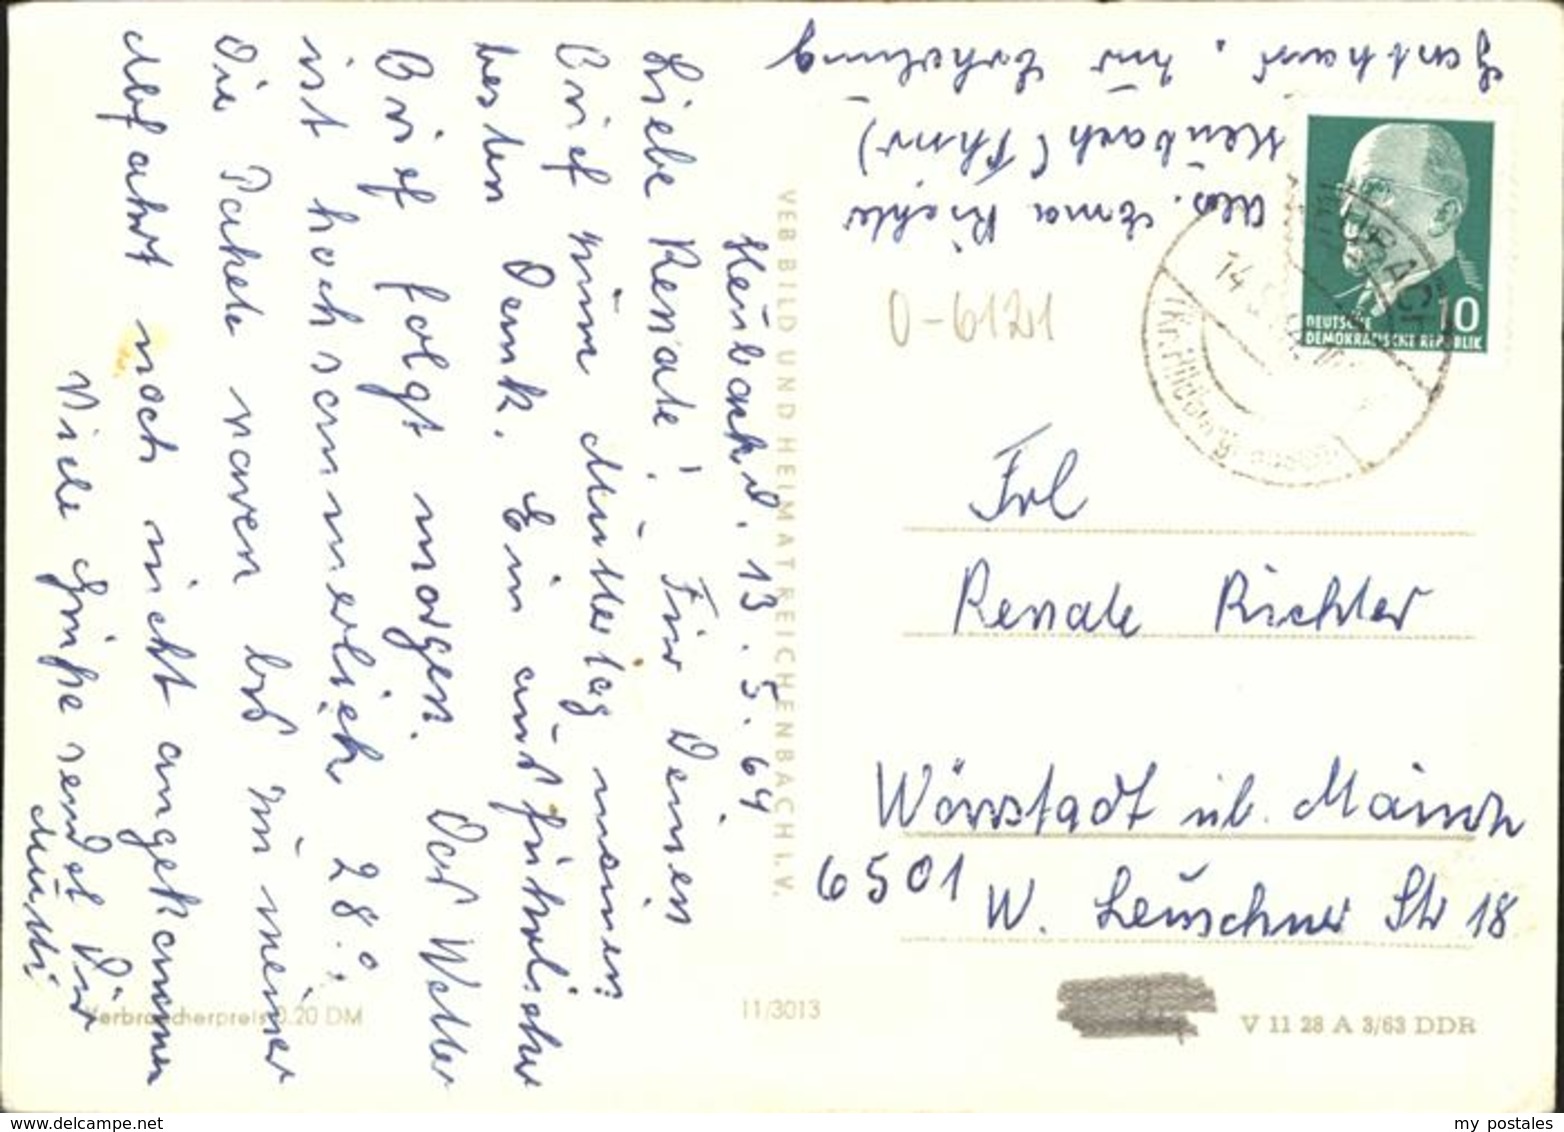 Heubach d. 13.5.64
Liebe Renate! Für Deinen
Brief zum Muttertag meinen
besten Dank. Ein ausführlicher
Brief folgt morgen. Das Wetter
ist hochsommerlich 28.°,
Die Pakete waren bis zu meiner
Abfahrt noch nicht angekommen
Viele Grüße sendet Dir
Mutti
Abs. Erna Richter
Heubach (Thür)
Gasthaus, zur Erholung
O-6121
DEUTSCHE
DEMOKRATISCHE REPUBLIK
10
HEUBACH
(Kr. Hildburghausen)
14.5.64
Frl
Renate Richter
Wörrstadt üb. Mainz
6501 W. Leuschner Str 18
VEB BILD UND HEIMAT REICHENBACH I. V.
Verbraucherpreis 0.20 DM
11/3013
V 11 28 A 3/63 DDR
my postales